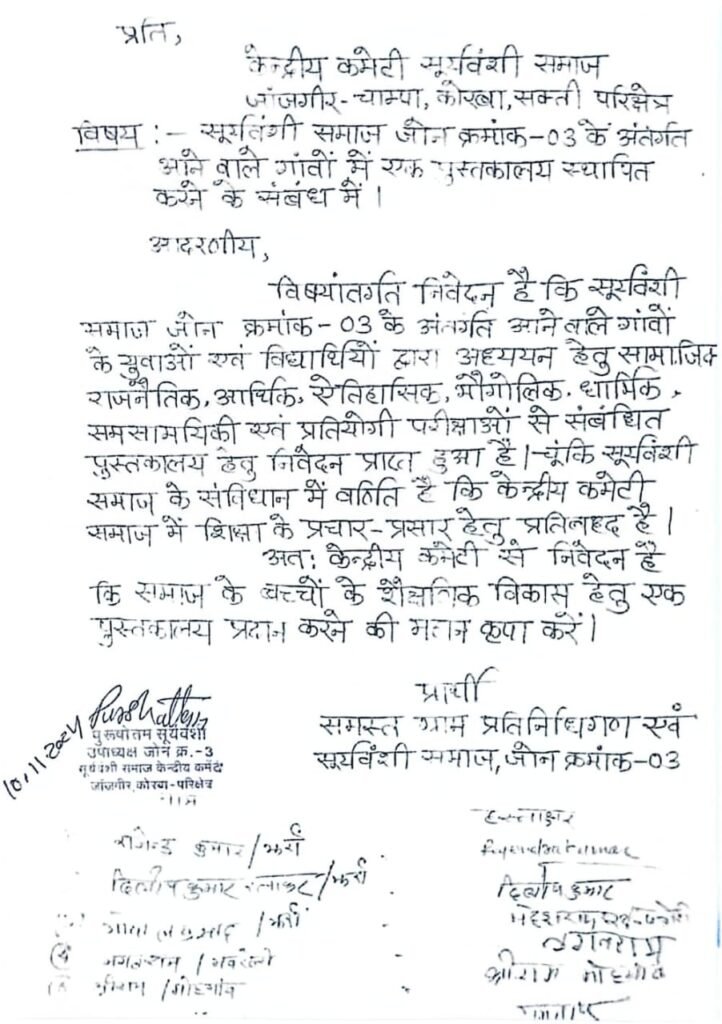 प्रति,
केन्द्रीय कमेटी सूर्यवंशी समाज
जांजगीर-चाम्पा, कोरबा, सक्ती परिक्षेत्र
विषय :- सूर्यवंशी समाज जोन क्रमांक-03 के अंतर्गत
आने वाले गांवों में एक पुस्तकालय स्थापित
करने के संबंध में।
आदरणीय,
विषयांतर्गत निवेदन है कि सूर्यवंशी
समाज जोन क्रमांक-03 के अंतर्गत आने वाले गांवों
के युवाओं एवं विद्यार्थियों द्वारा अध्ययन हेतु सामाजिक
राजनैतिक, आर्थिक, ऐतिहासिक, भौगोलिक, धार्मिक,
समसामयिकी एवं प्रतियोगी परीक्षाओं से संबंधित
पुस्तकालय हेतु निवेदन प्राप्त हुआ है। चूंकि सूर्यवंशी
समाज के संविधान में वर्णित है कि केन्द्रीय कमेटी
समाज में शिक्षा के प्रचार-प्रसार हेतु प्रतिबद्ध है।
अतः केन्द्रीय कमेटी से निवेदन है
कि समाज के बच्चों के शैक्षणिक विकास हेतु एक
पुस्तकालय प्रदान करने की महान कृपा करें।
प्रार्थी
समस्त ग्राम प्रतिनिधिगण एवं
सूर्यवंशी समाज, जोन क्रमांक-03
10.11.2024
पुरूषोत्तम सूर्यवंशी
उपाध्यक्ष जोन क्र.-3
सूर्यवंशी समाज केन्द्रीय कमेटी
जांजगीर, कोरबा-परिक्षेत्र
हस्ताक्षर
कुमार/झर्रा
दिलीप कुमार /झर्रा
दिलीप कुमार
/झर्रा
जगतराम
श्रीराम